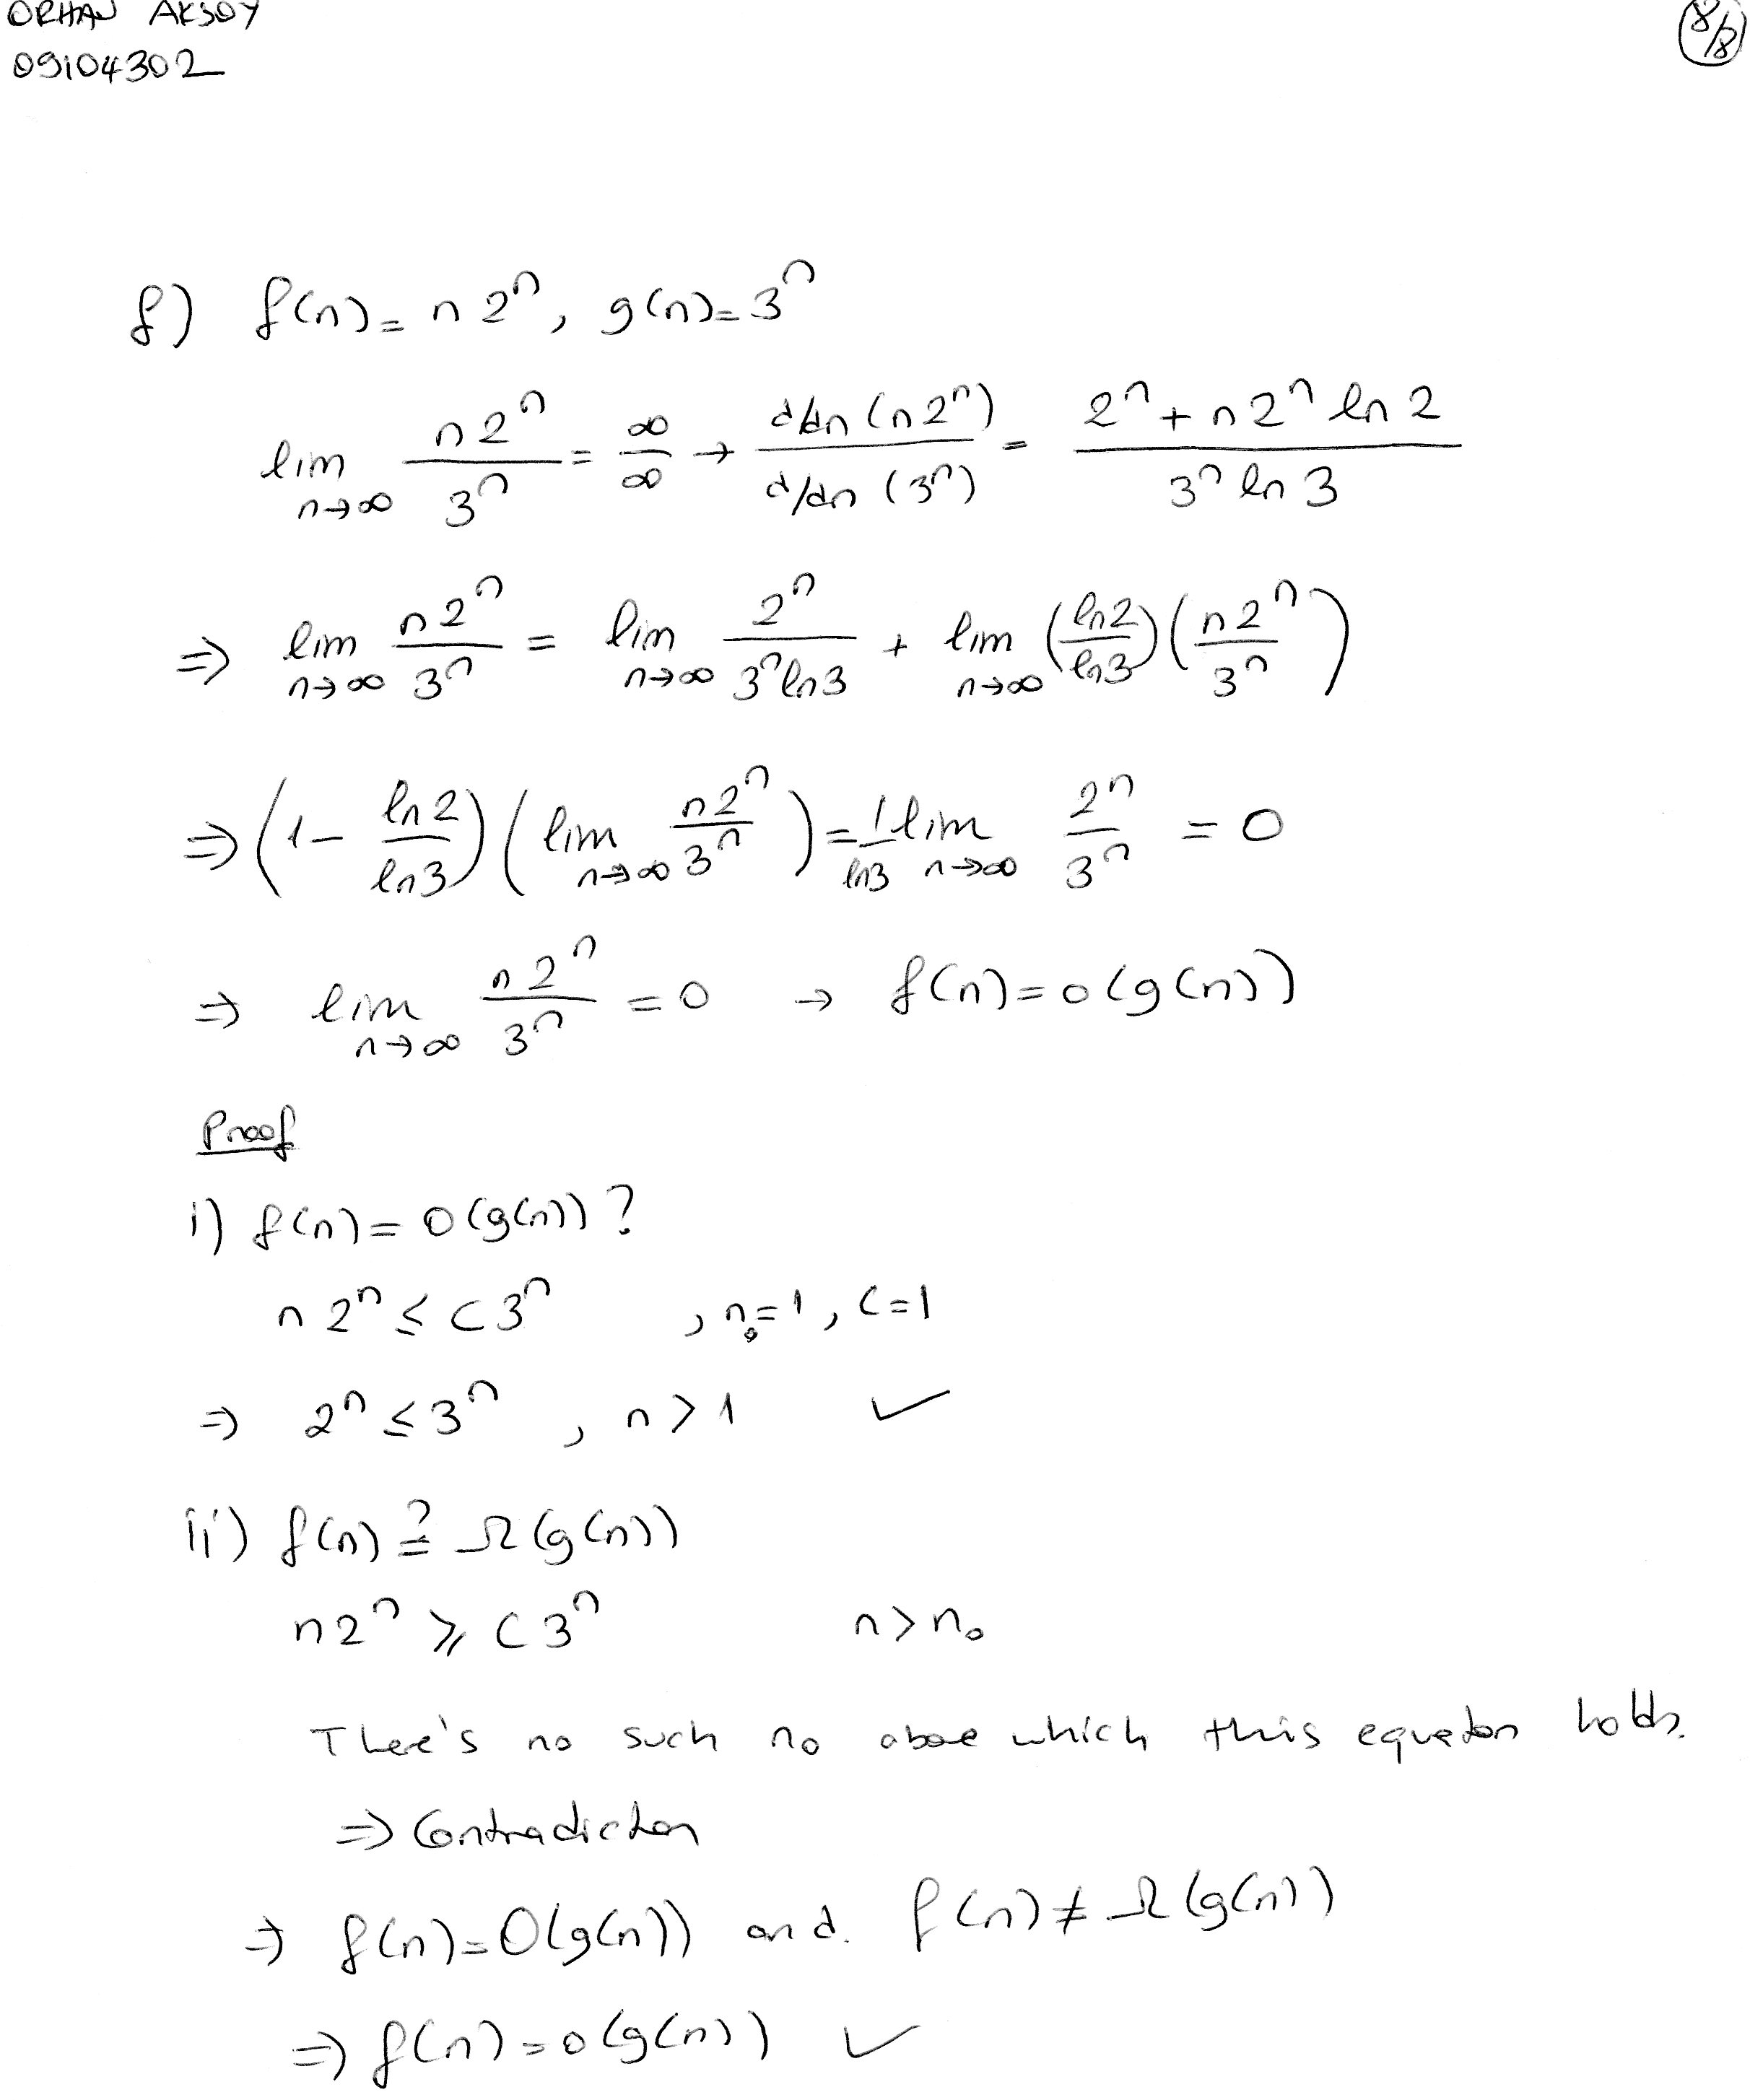 ORHAN AKSOY
09104302
8/8
f) f(n) = n 2ⁿ, g(n) = 3ⁿ
lim n→∞ n2ⁿ/3ⁿ = ∞/∞ → d/dn (n2ⁿ) / d/dn (3ⁿ) = (2ⁿ + n2ⁿ ln 2) / (3ⁿ ln 3)
⇒ lim n→∞ n2ⁿ/3ⁿ = lim n→∞ 2ⁿ/(3ⁿ ln3) + lim n→∞ (ln2/ln3) (n2ⁿ/3ⁿ)
⇒ (1 - ln2/ln3) (lim n→∞ n2ⁿ/3ⁿ) = 1/ln3 lim n→∞ 2ⁿ/3ⁿ = 0
⇒ lim n→∞ n2ⁿ/3ⁿ = 0 → f(n) = o(g(n))
Proof
i) f(n) = O(g(n)) ?
n 2ⁿ ≤ c 3ⁿ , n₀=1, c=1
⇒ 2ⁿ ≤ 3ⁿ , n > 1 ✓
ii) f(n) ≟ Ω(g(n))
n2ⁿ ≥ c 3ⁿ n > n₀
There's no such n₀ above which this equation holds.
⇒ Contradiction
⇒ f(n) = O(g(n)) and f(n) ≠ Ω(g(n))
⇒ f(n) = o(g(n)) ✓